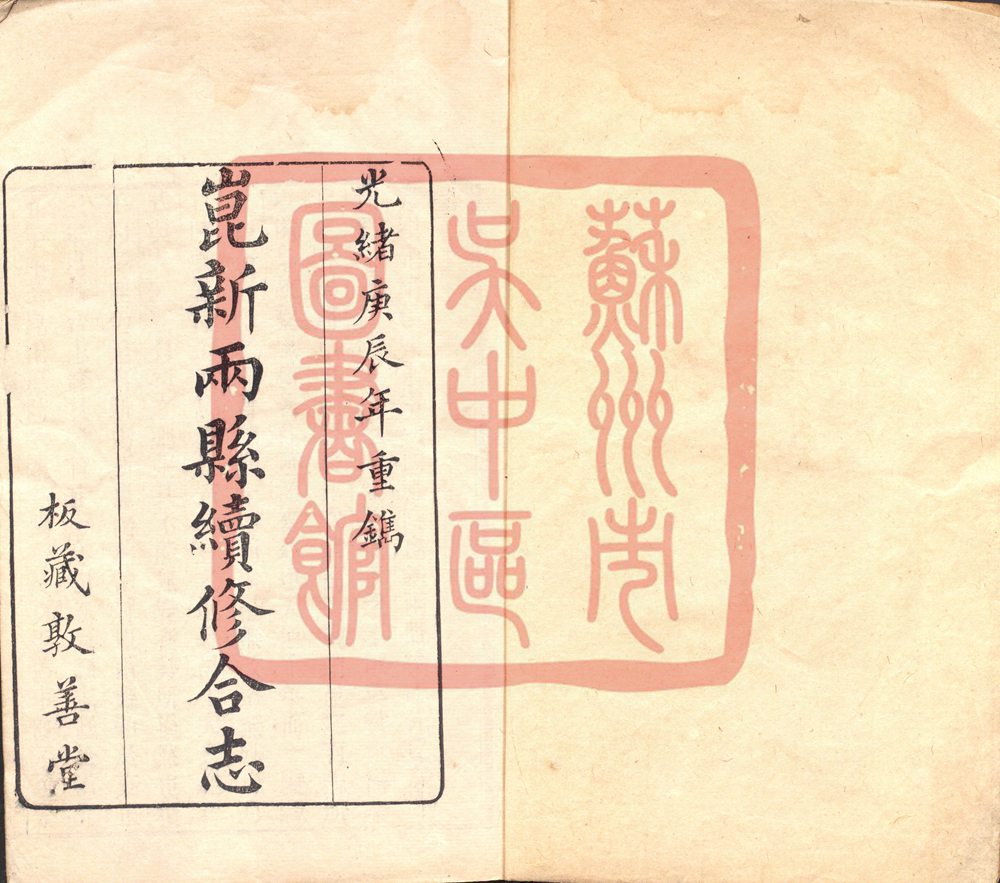 光緒庚辰年重鐫
崑新兩縣續修合志
板藏敦善堂
蘇州市
吳中區
圖書館